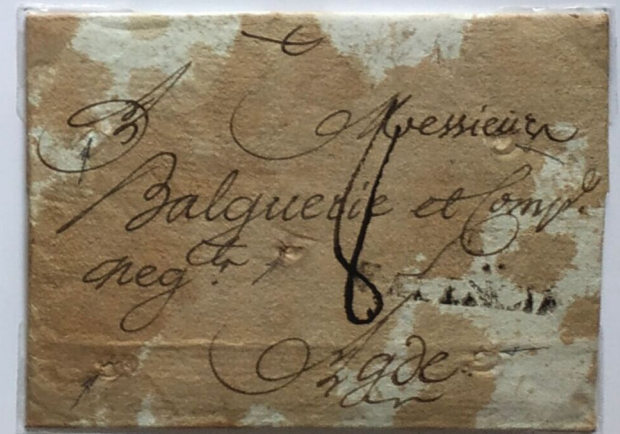 A Messieurs
Balguerie et Comp.e
neg.ts
8
Agde